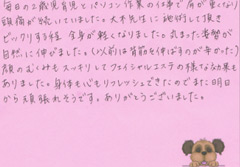 毎日の2歳児育児とパソコン作業の仕事で肩が重くなり
頭痛が続いていました。大木先生に施術して頂き
ビックリする程、全身が軽くなりました。丸まった背骨が
自然に伸びました。（以前は背筋を伸ばすのが辛かった）
顔のむくみもスッキリしてフェイシャルエステの様な効果も
ありました。身体も心もリフレッシュできたのでまた明日
から頑張れそうです。ありがとうございました。